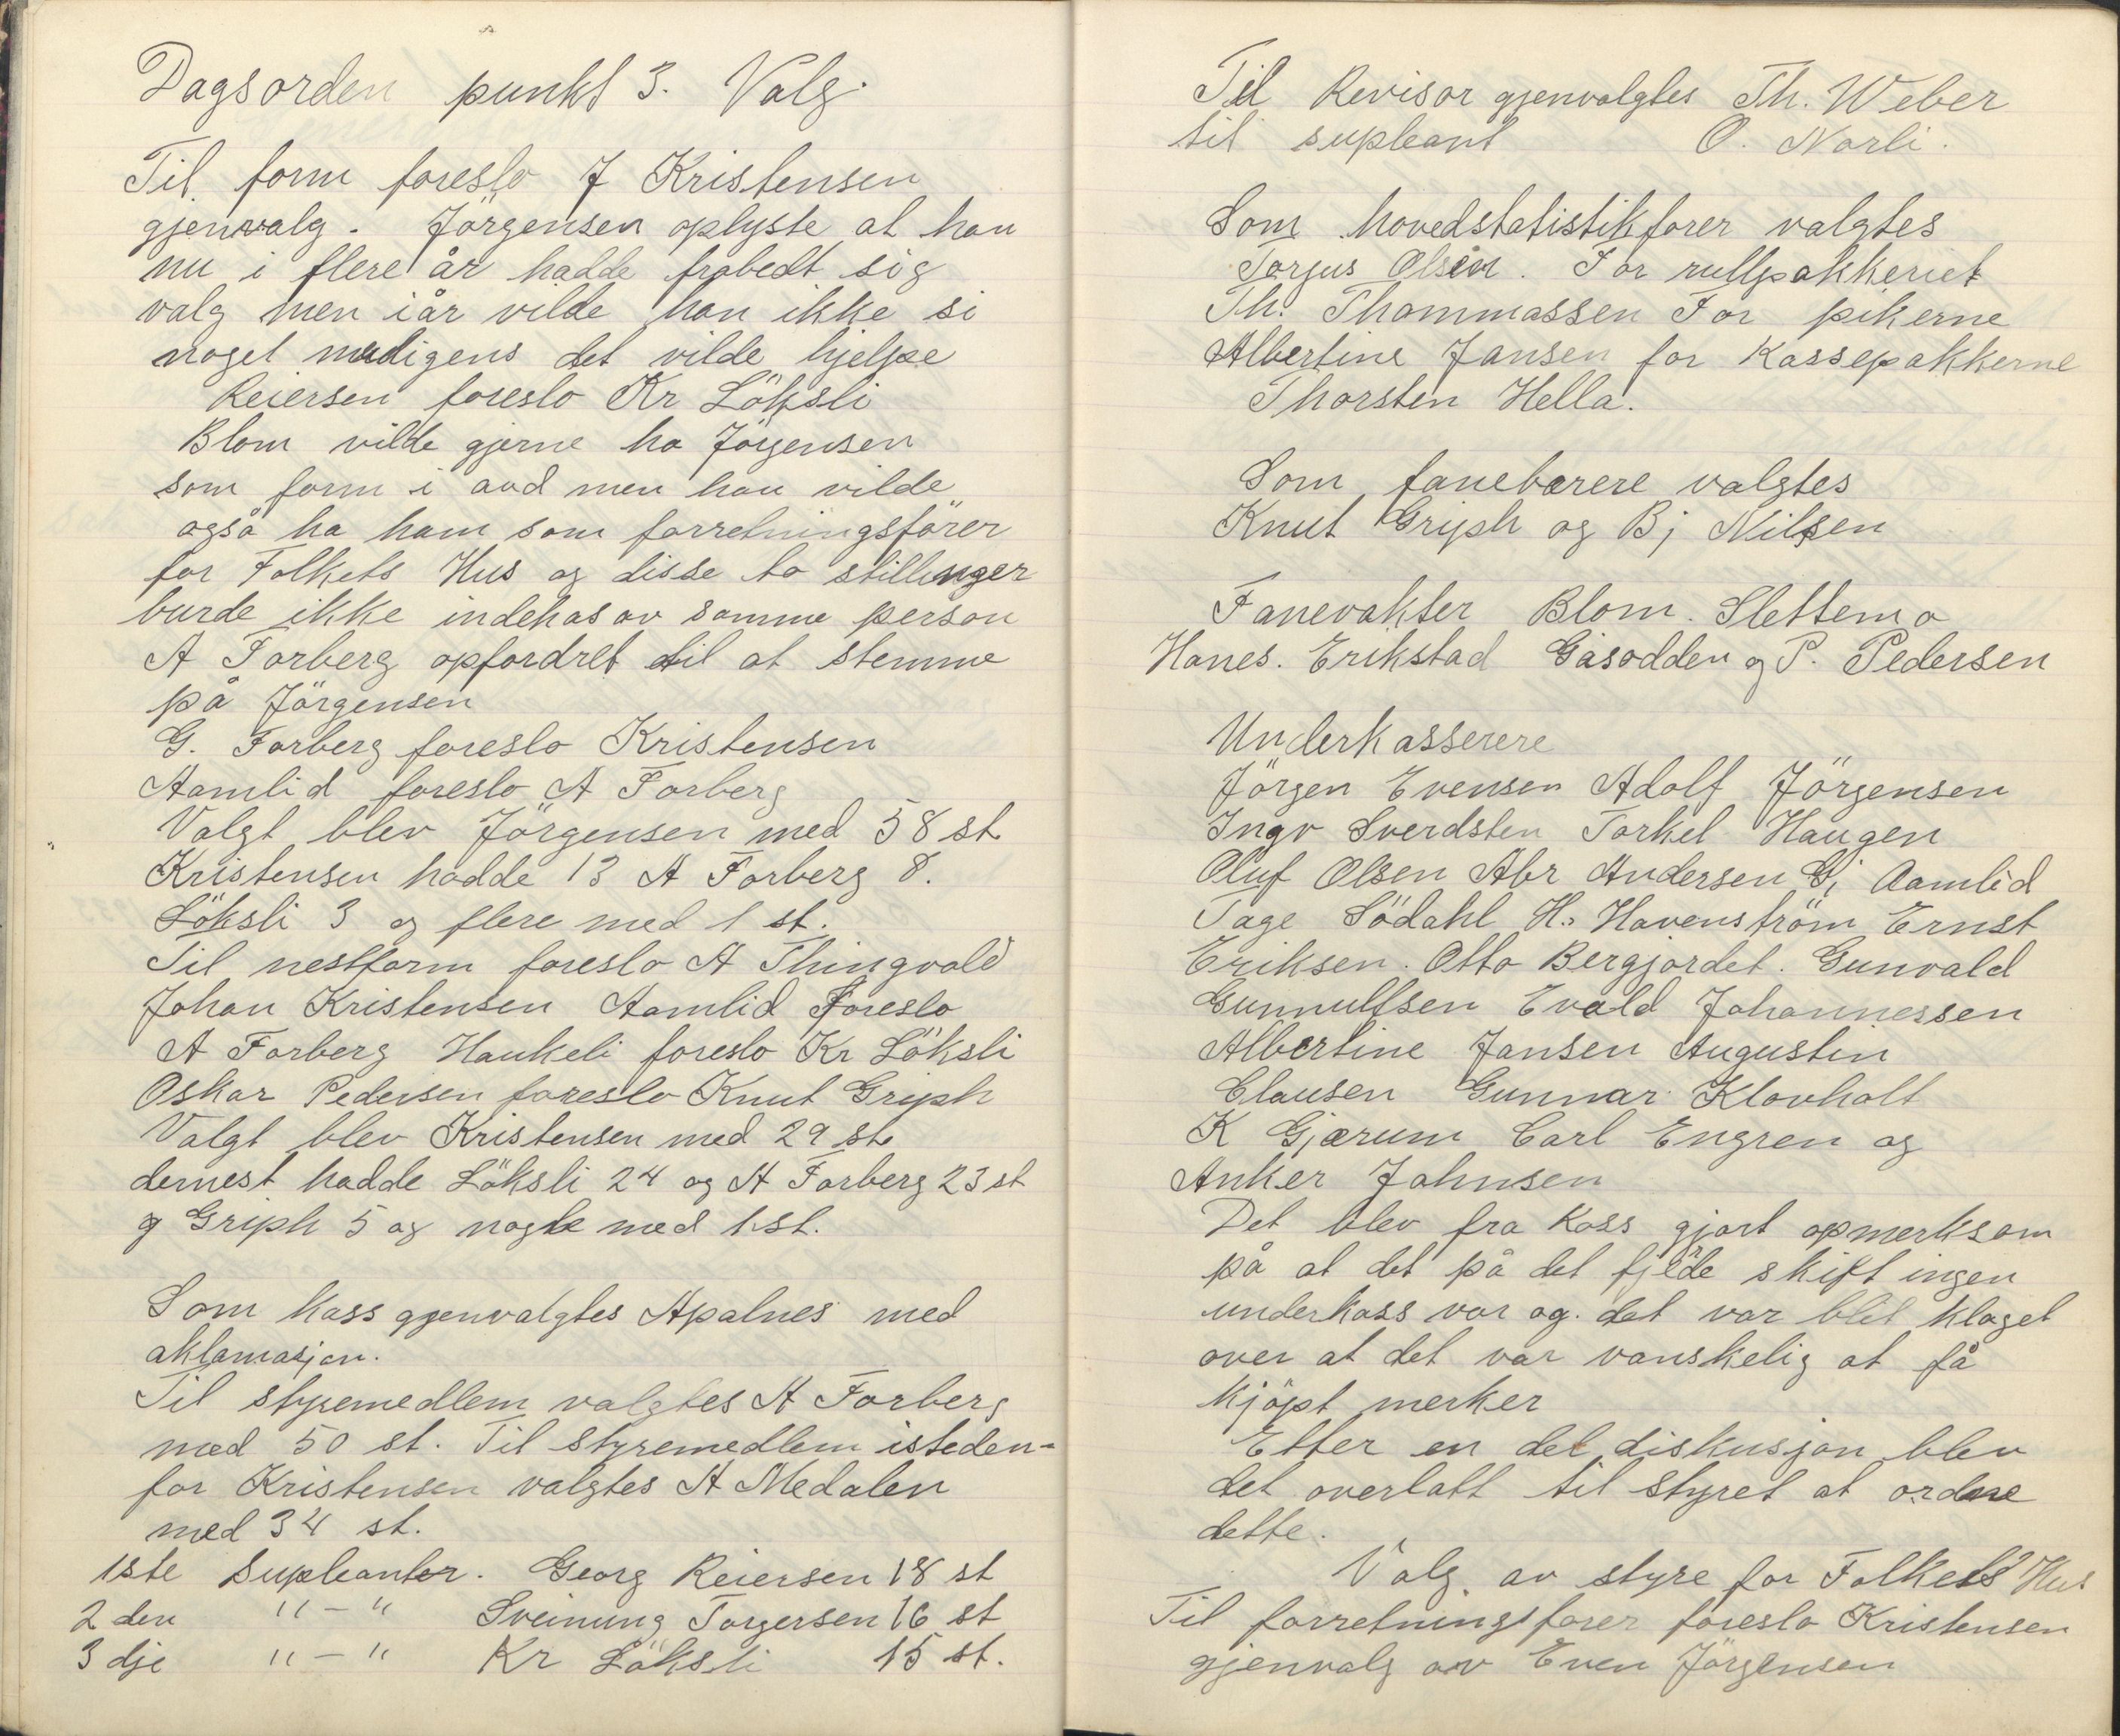 Dagsorden punkt 3. Valg.
Til form foreslo J Kristensen
gjenvalg. Jörgensen oplyste at han
nu i flere år hadde frabedt sig
valg men iår vilde han ikke si
noget medigens det vilde hjelpe
Reiersen foreslo Kr Löksli
Blom vilde gjerne ha Jörgensen
som form i avd men han vilde
også ha ham som forretningsförer
for Folkets Hus og disse to stillinger
burde ikke indehas av samme person
A Forberg opfordret til at stemme
på Jörgensen
G. Forberg foreslo Kristensen
Aamlid foreslo A Forberg
Valgt blev Jörgensen med 58 st
Kristensen hadde 13 A Forberg 8.
Löksli 3 og flere med 1 st.
Til nestform foreslo A Thingvold
Johan Kristensen Aamlid foreslo
A Forberg Haukeli foreslo Kr Löksli
Oskar Pedersen foreslo Knut Griph
Valgt blev Kristensen med 29 st
dernest hadde Löksli 24 og A Forberg 23 st
og Griph 5 og nogle med 1 st.
Som kass gjenvalgtes Apalnes med
aklamasjon.
Til styremedlem valgtes A Forberg
med 50 st. Til styremedlem isteden-
for Kristensen valgtes A Medalen
med 34 st.
1ste Supleanter. Georg Reiersen 18 st
2den " - " Sveinung Torgersen 16 st
3dje " - " Kr Löksli 15 st.
Til Revisor gjenvalgtes Th. Weber
til supleant O. Norli.
Som hovedstatistikfører valgtes
Torjus Olsen. For rullpakkeriet
Th. Thommassen For pikerne
Albertine Jansen for Kassepakkerne
Thorsten Hella.
Som fanebærere valgtes
Knut Griph og Bj Nilsen
Fanevakter Blom. Slettemo
Hanes. Erikstad Gåsodden og P. Pedersen
Underkasserere
Jörgen Evensen Adolf Jörgensen
Ingv Sverdsten Torkel Haugen
Oluf Olsen Abr Andersen Gj Aamlid
Tage Södahl H. Havenström Ernst
Eriksen. Otto Bergjordet. Gunvald
Gunnulfsen Evald Johannessen
Albertine Jansen Augustin
Clausen Gunnar Klovholt
K Gjærum Carl Engren og
Anker Johnsen
Det blev fra Kass gjort opmerksom
på at det på det fjerde skift ingen
underkass var og det var blit klaget
over at det var vanskelig at få
kjöpt merker
Etter en del diskusjon blev
det overlatt til styret at ordne
dette.
Valg av styre for Folkets Hus
Til forretningsfører foreslo Kristensen
gjenvalg av Even Jörgensen